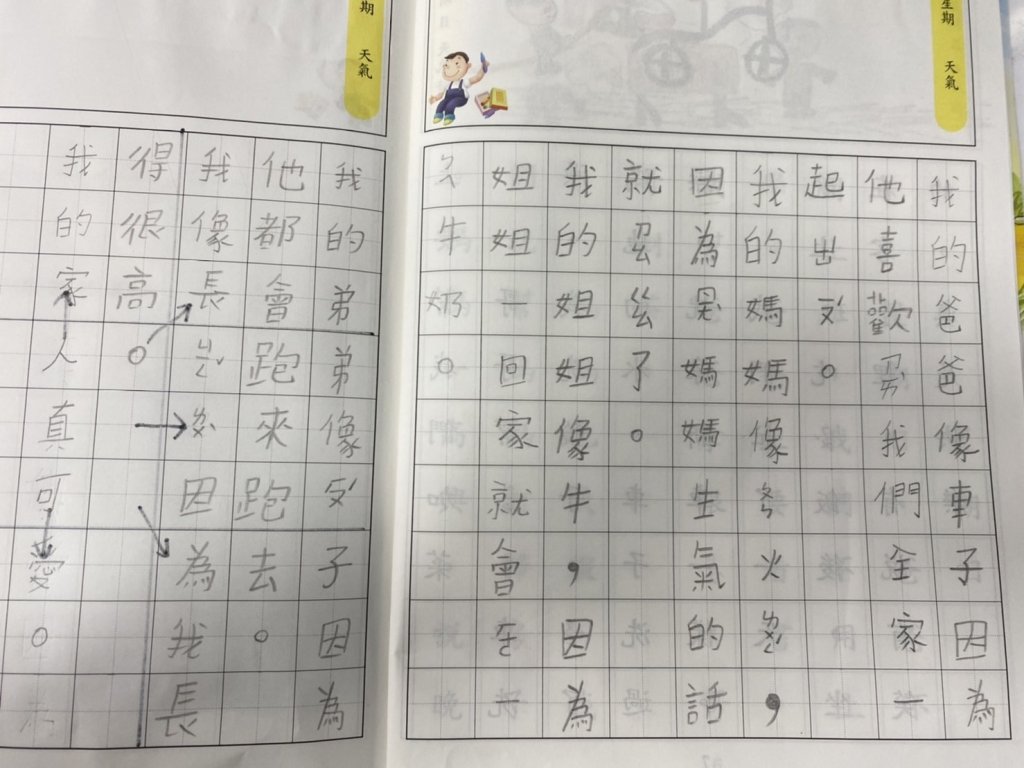 星期 天氣
我的爸爸像車子因為
他喜歡我們全家一
起出。
我的媽媽像火，
因為是媽媽生氣的話
就了。
我的姐姐像牛，因為
姐姐回家就會在一
牛奶。
期 天氣
我的弟弟像子因為
他都會跑來跑去。
我像長因為我長
得很高。
我的家人真可愛。